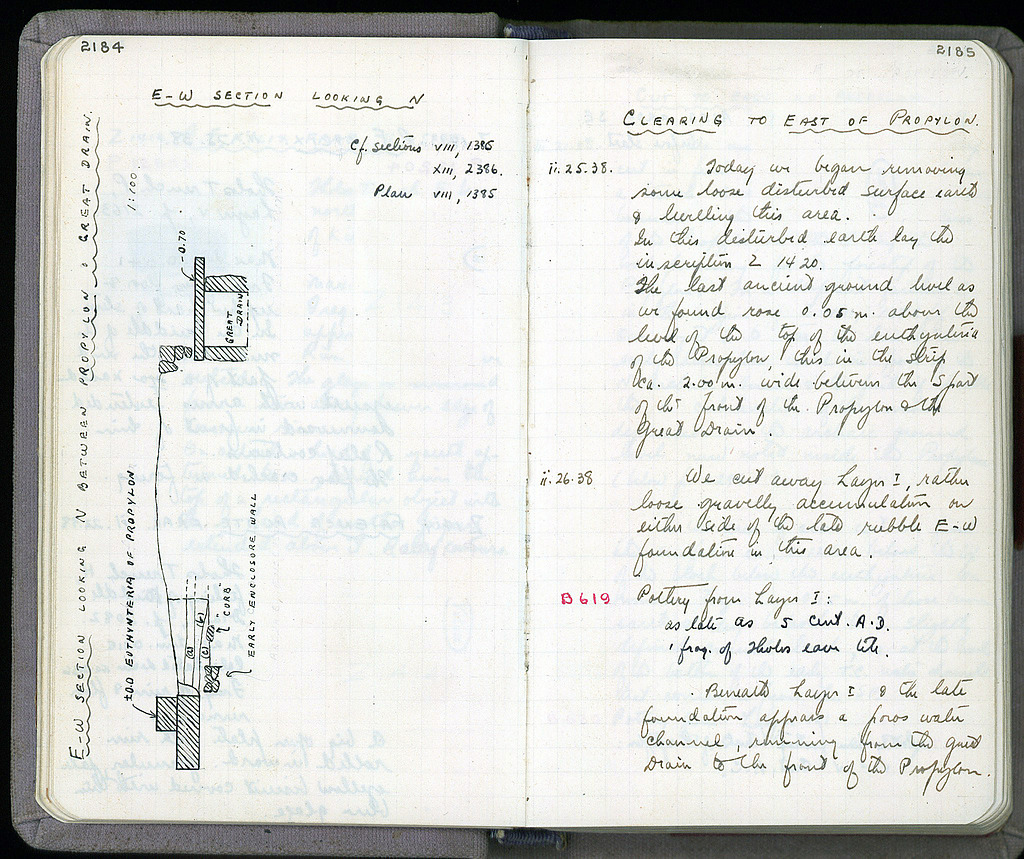 2184
E-W SECTION LOOKING N
Cf. sections VIII, 1385
XIII, 2386.
Plan VIII, 1385
E-W SECTION LOOKING N BETWEEN PROPYLON & GREAT DRAIN.
1:100
-0.70
GREAT
DRAIN
±0.0 EUTHYNTERIA OF PROPYLON
(a)
(b)
(c)
CURB
EARLY ENCLOSURE WALL
2185
CLEARING TO EAST OF PROPYLON.
ii.25.38. Today we began removing
some loose disturbed surface earth
& levelling this area.
In this disturbed earth lay the
inscription Σ 1420.
The last ancient ground level as
we found rose 0.05 m. above the
level of the top of the euthynteria
of the Propylon, this in the strip
ca. 2.00 m. wide between the S part
of the front of the Propylon & the
Great Drain.
ii.26.38 We cut away Layer I, rather
loose gravelly accumulation on
either side of the late rubble E-W
foundation in this area.
B619 Pottery from Layer I:
as late as 5 cent. A.D.
1 frag. of tholos eaves tile.
Beneath Layer I & the late
foundation appears a poros water
channel, running from the great
Drain to the front of the Propylon.